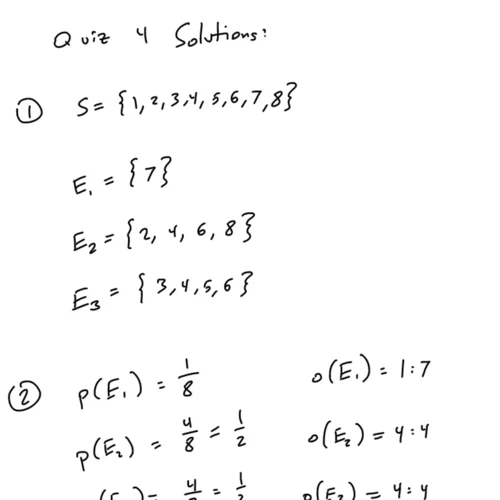 Quiz 4 Solutions:
① S = {1, 2, 3, 4, 5, 6, 7, 8}
E₁ = {7}
E₂ = {2, 4, 6, 8}
E₃ = {3, 4, 5, 6}
② p(E₁) = 1/8 o(E₁) = 1:7
p(E₂) = 4/8 = 1/2 o(E₂) = 4:4
p(E₃) = 4/8 = 1/2 o(E₃) = 4:4